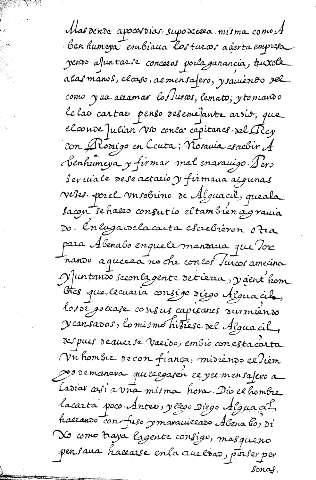 Mas dende a pocos dias supo de ella misma como A
ben humeya embiava los turcos a cierta empresa
yendo a juntarse con ellos por la ganancia, truxole
a las manos, el caso, al mensajero, y saviendo del
como yva a llamar los turcos, le mato; y tomando
le las cartas penso de semejante ardid, que
el conde Julian vso con los capitanes del Rey
don Rodrigo en Ceuta; No savia escrebir A
benhumeya y firmar mal en aravigo. Pero
serviale de secretario y firmava algunas
veces por el vn sobrino de Alguacil, que a la
saçon se hallo con su tio el tambien agraviado
do. En lugar de la carta escrebieron otra
para Abenabo en que le mandava que tor
nando aquella noche con los Turcos a mecina
y juntando se con la gente de tierra, y cient hom
bres que levaria consigo Diego Alguacil,
los degollase con sus capitanes durmiendo
y cansados; lo mismo hiçiese del Alguacil,
despues de averse valido, embio con esta carta
vn hombre de confiança, midiendo el tiem
po de manera que llegasen el y el mensajero a
Cadiar casi a vna misma hora. Dio el hombre
la carta poco antes, y llego Diego Alguacil,
hallando confuso y maravillado Abenabo, di
xo como traya la gente consigo, mas que no
pensava hallarse en la crueldad, por ser per
sonas.